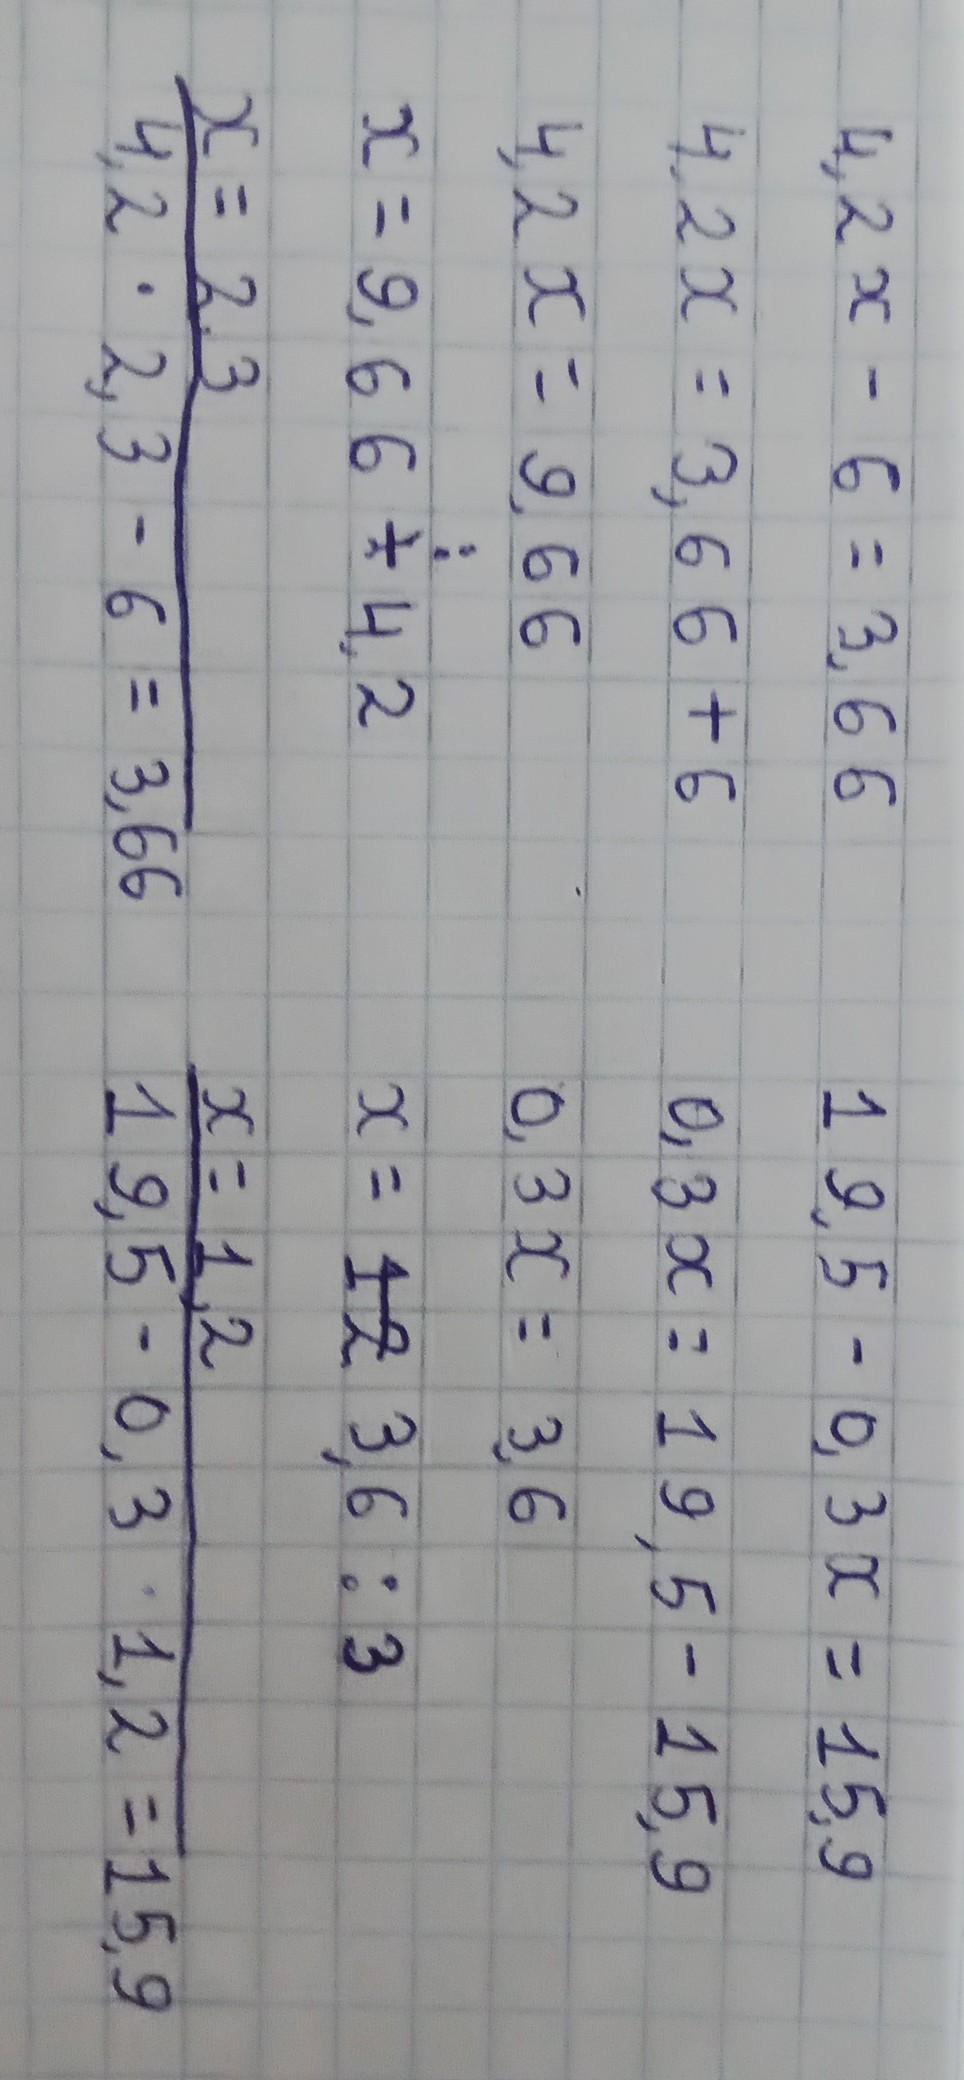 4,2x - 6 = 3,66
4,2x = 3,66 + 6
4,2x = 9,66
x = 9,66 : 4,2
x = 2,3
4,2 · 2,3 - 6 = 3,66
19,5 - 0,3x = 15,9
0,3x = 19,5 - 15,9
0,3x = 3,6
x = 3,6 : 3
x = 1,2
19,5 - 0,3 · 1,2 = 15,9